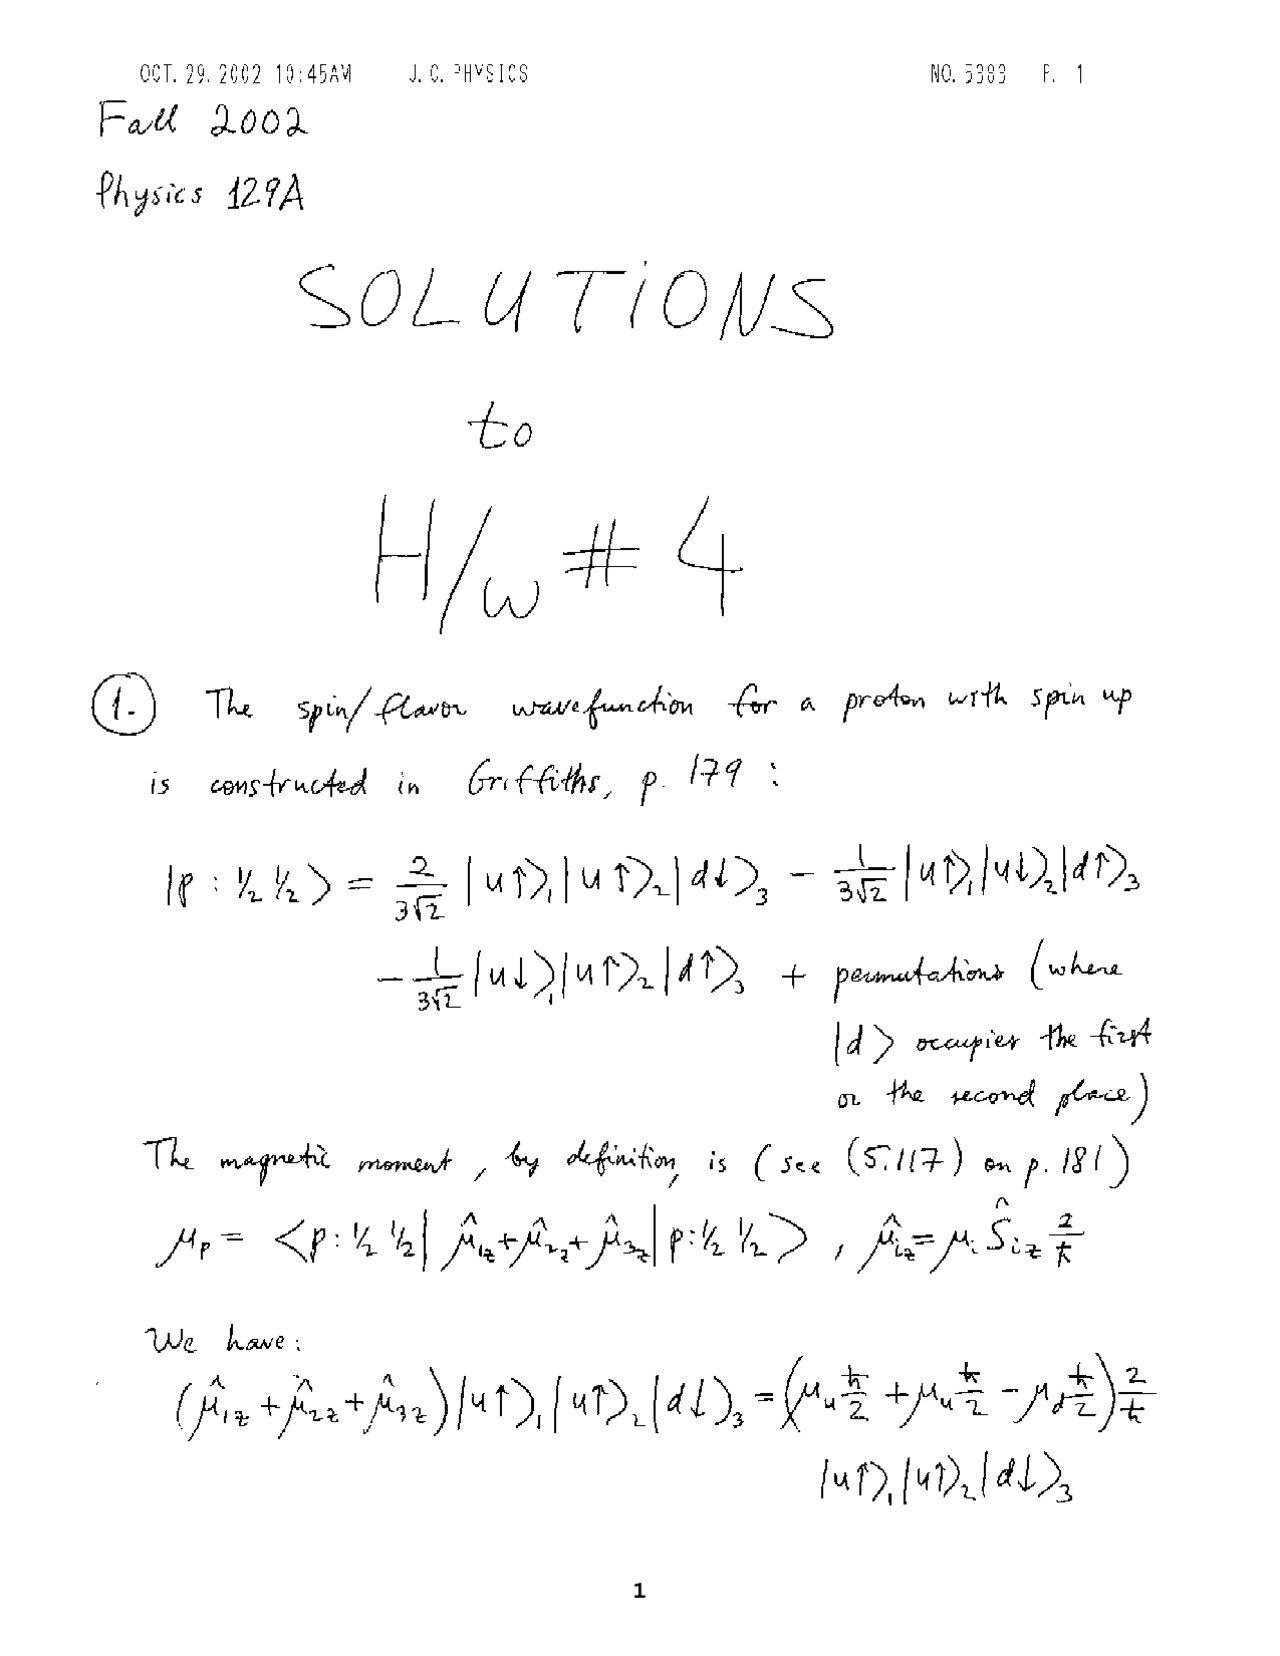 OCT. 29. 2002 10:45AM J. C. PHYSICS NO. 5383 P. 1
Fall 2002
Physics 129A
SOLUTIONS
to
H/w # 4
1. The spin/flavor wavefunction for a proton with spin up
is constructed in Griffiths, p. 179 :
|p : ½ ½ ⟩ = 2/(3√2) |u↑⟩₁|u↑⟩₂|d↓⟩₃ − 1/(3√2) |u↑⟩₁|u↓⟩₂|d↑⟩₃
− 1/(3√2) |u↓⟩₁|u↑⟩₂|d↑⟩₃ + permutations (where
|d⟩ occupies the first
or the second place)
The magnetic moment, by definition, is (see (5.117) on p. 181)
μ_p = <p : ½ ½| μ̂_1z + μ̂_2z + μ̂_3z |p : ½ ½⟩ , μ̂_iz = μ_i Ŝ_iz 2/ħ
We have:
(μ̂_1z + μ̂_2z + μ̂_3z)|u↑⟩₁|u↑⟩₂|d↓⟩₃ = (μ_u ħ/2 + μ_u ħ/2 − μ_d ħ/2) 2/ħ
|u↑⟩₁|u↑⟩₂|d↓⟩₃
1